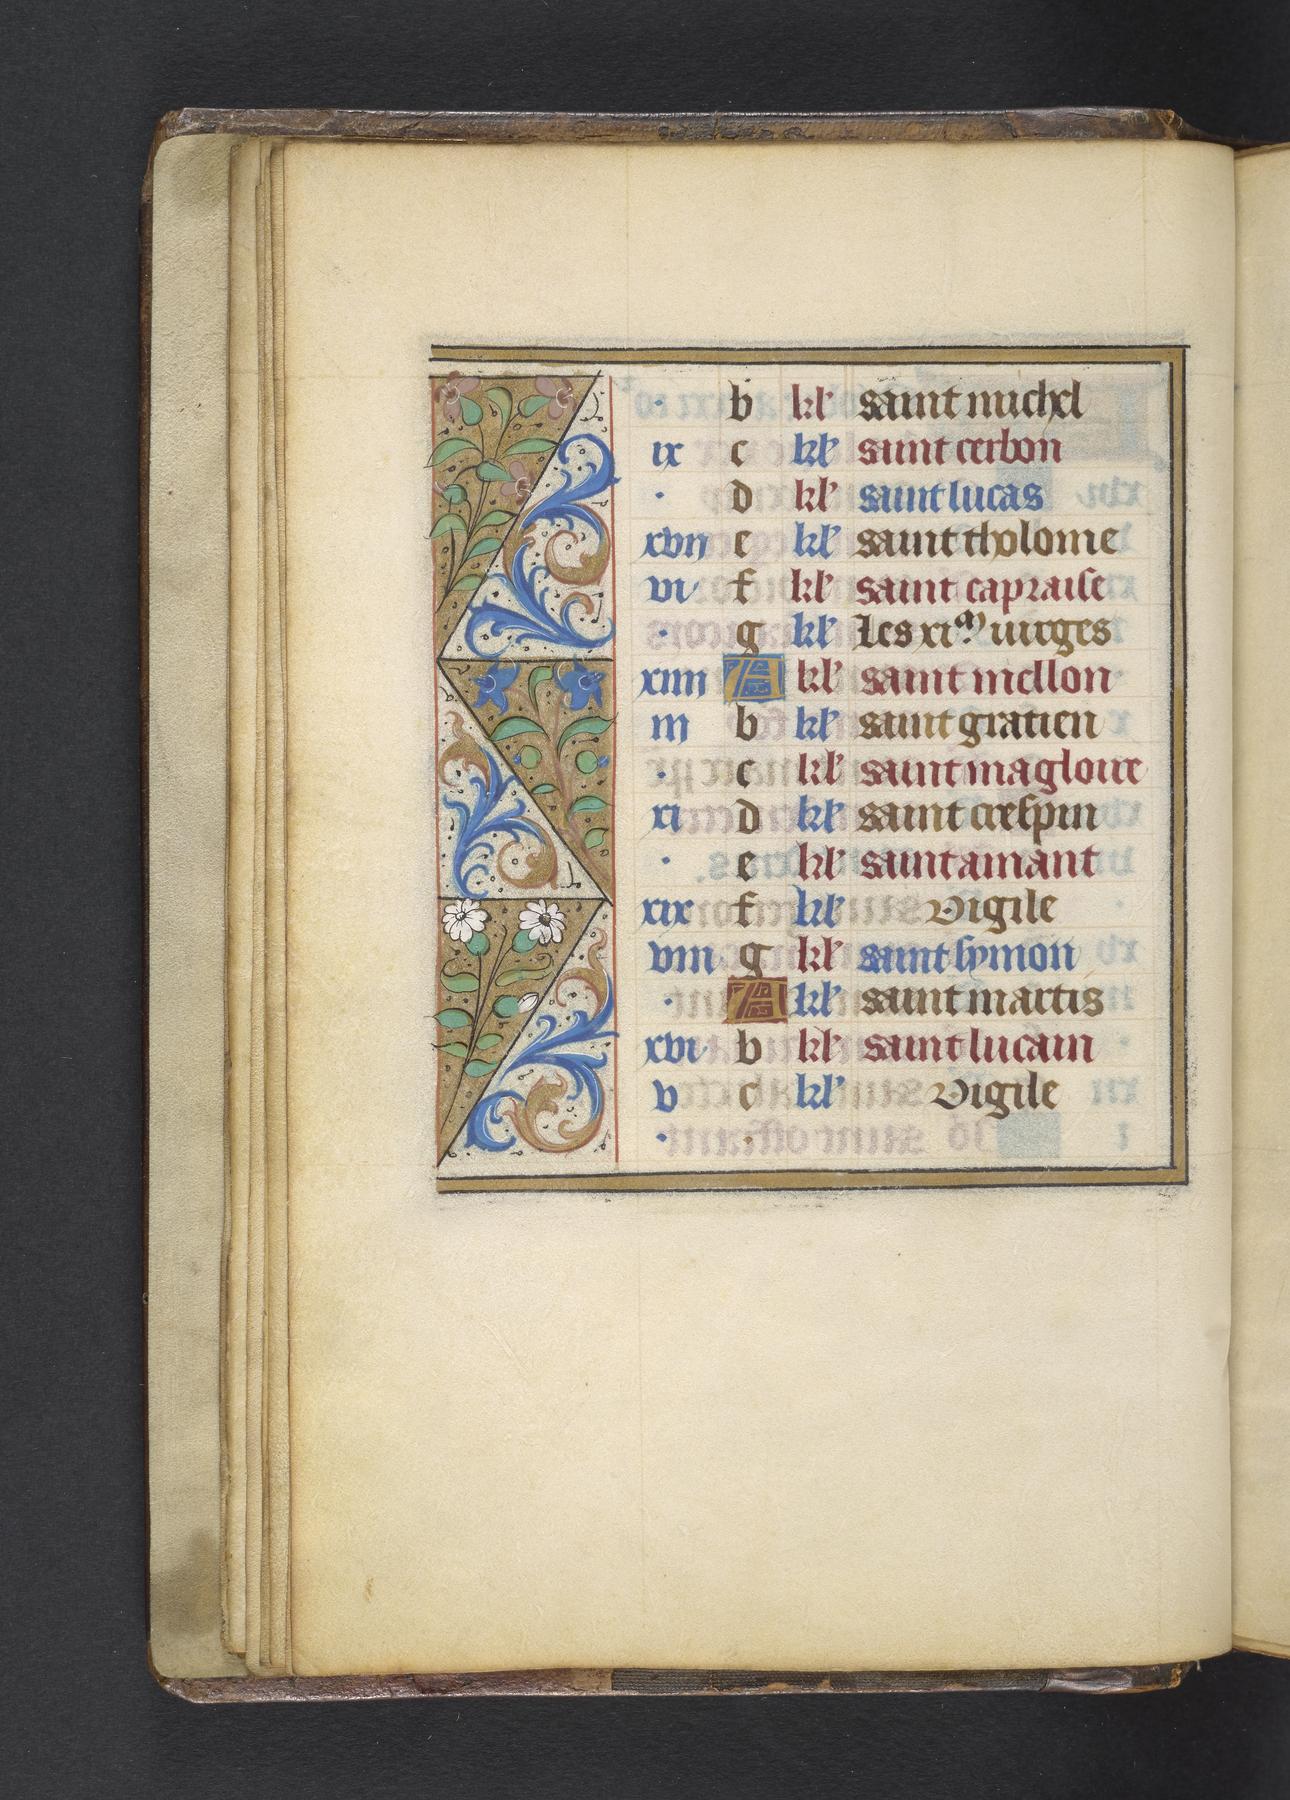 · b kl' saint michel
ix c kl' saint cerbon
· d kl' saint lucas
xvii e kl' saint tholome
vi· f kl' saint capraise
· g kl' Les xi m virges
xiiii A kl' saint mellon
iii b kl' saint gratien
· c kl' saint magloire
xi d kl' saint crespin
· e kl' saint amant
xix f kl' Vigile
viii g kl' saint symon
· A kl' saint martis
xvi· b kl' saint lucain
v c kl' Vigile